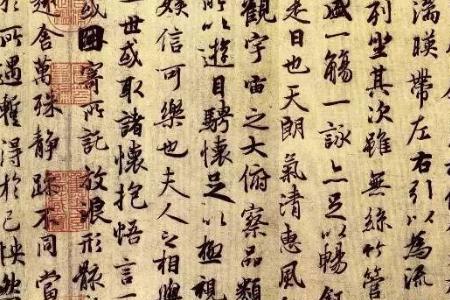 湍暎帶左右引以為流
列坐其次雖無絲竹管
盛一觴一詠亦足以暢
是日也天朗氣清惠風
觀宇宙之大俯察品類
所以遊目騁懷足以極視
娛信可樂也夫人之相與
一世或取諸懷抱悟言一
或因寄所託放浪形骸
舍萬殊静躁不同當
於所遇暫得於己怏然